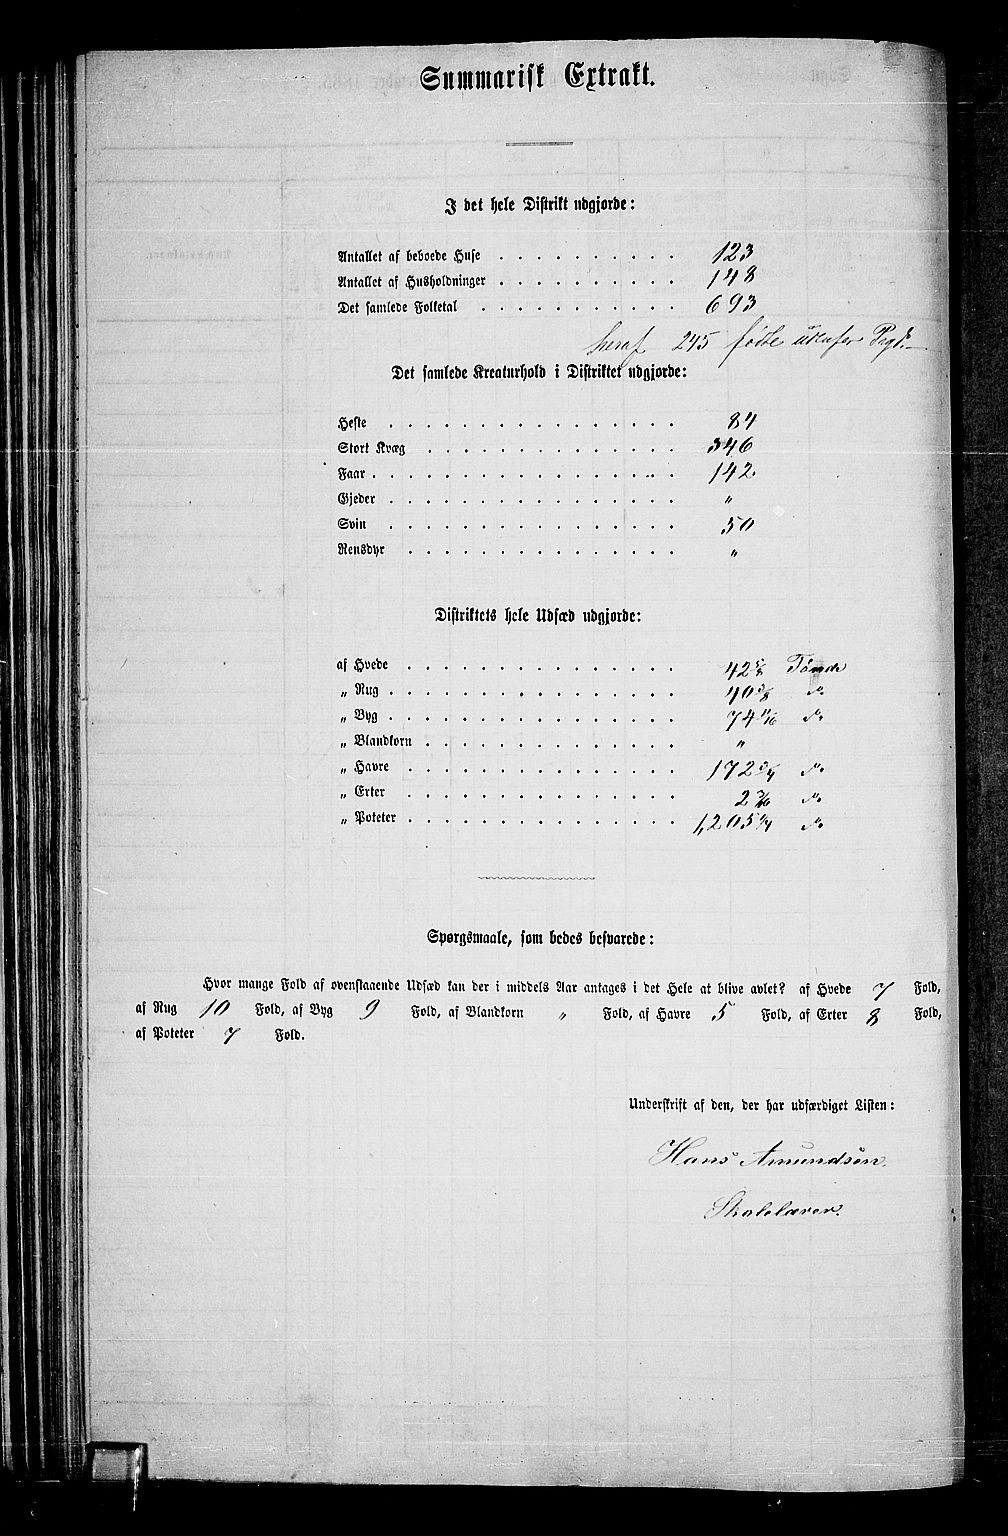 Summarisk Extrakt.
I det hele Distrikt udgjorde:
Antallet af beboede Huse . . . . . . . . . . 123
Antallet af Husholdninger . . . . . . . . . . 148
Det samlede Folketal . . . . . . . . . . . 693
heraf 245 fødte udenfor Prgld.
Det samlede Kreaturhold i Distriktet udgjorde:
Heste . . . . . . . . . . . . . . . . 84
Stort Kvæg . . . . . . . . . . . . . . 346
Faar . . . . . . . . . . . . . . . . . 142.
Gjeder . . . . . . . . . . . . . . . . "
Svin . . . . . . . . . . . . . . . . 50
Rensdyr . . . . . . . . . . . . . . . "
Distriktets hele Udsæd udgjorde:
af Hvede . . . . . . . . . . . . . . . 42 5/8 Tønde
„ Rug . . . . . . . . . . . . . . . . 40 3/8 do
„ Byg . . . . . . . . . . . . . . . . 74 11/16 do
„ Blandkorn . . . . . . . . . . . . . . "
„ Havre . . . . . . . . . . . . . . . 172 3/4 do
„ Erter . . . . . . . . . . . . . . . 2 3/16 do
„ Poteter . . . . . . . . . . . . . . . 1,205 1/4 do
Spørgsmaale, som bedes besvarede:
Hvor mange Fold af ovenstaaende Udsæd kan der i middels Aar antages i det Hele at blive avlet? af Hvede 7 Fold,
af Rug 10 Fold, af Byg 9 Fold, af Blandkorn " Fold, af Havre 5 Fold, af Erter 8 Fold,
af Poteter 7 Fold.
Underskrift af den, der har udfærdiget Listen:
Hans Amundsen.
Skolelærer.